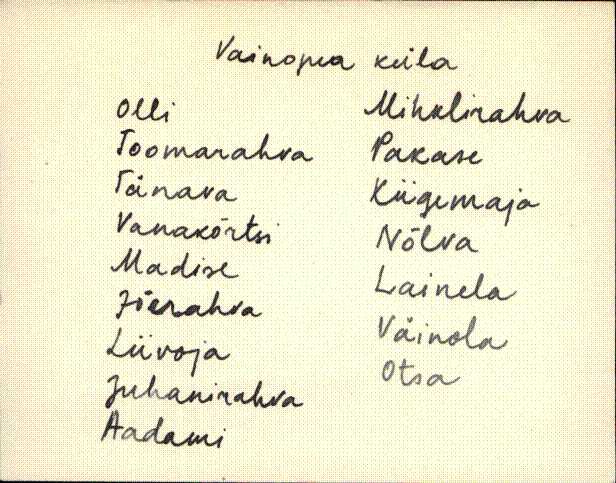 Vainopea küla
Olli
Toomarahva
Tänava
Vanakõrtsi
Madise
Jõerahva
Liivoja
Juhanirahva
Aadami
Mihklirahva
Pakase
Kiigemaja
Nõlva
Lainela
Väinola
Otsa